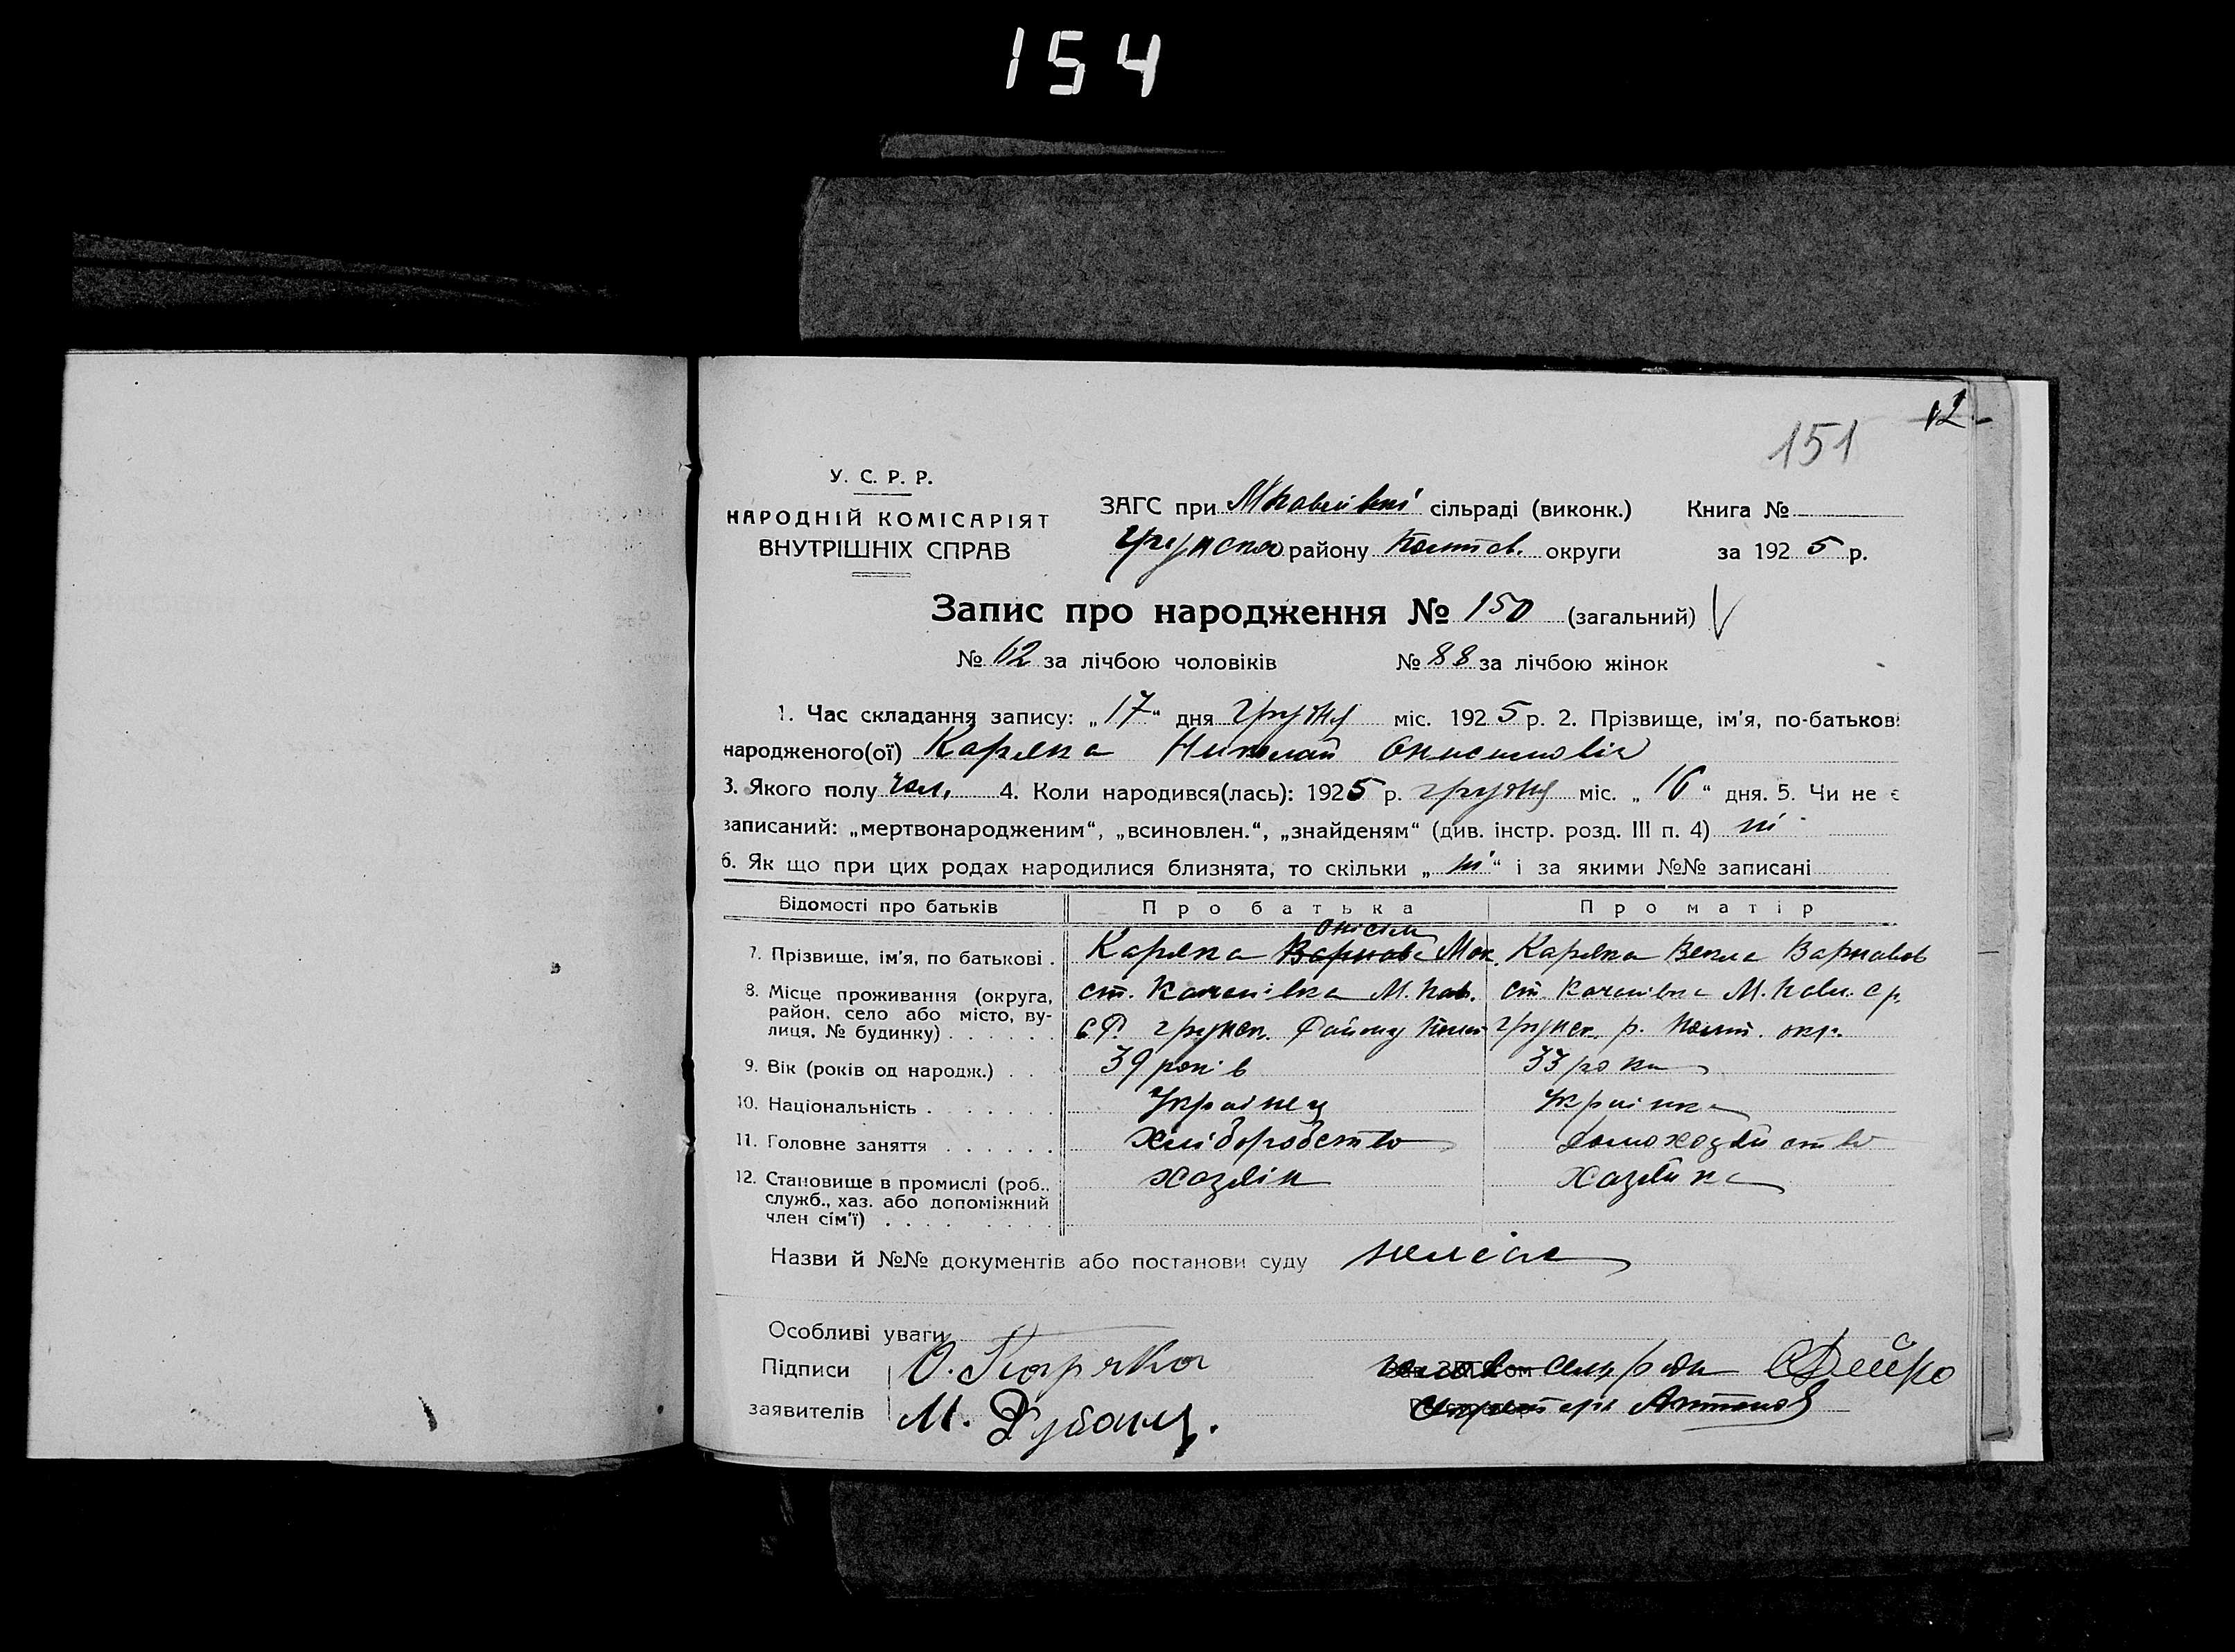 154
12
151
У. С. Р. Р.
НАРОДНІЙ КОМІСАРІЯТ
ВНУТРІШНІХ СПРАВ
ЗАГС при М Павлівкі сільраді (виконк.) Книга №
Грунско району Полтав. округи за 1925 р.
Запис про народження № 150 (загальний) V
№ 62 за лічбою чоловіків № 88 за лічбою жінок
1. Час складання запису: „17“ дня грудня міс. 1925 р. 2. Прізвище, ім'я, по-батькові
народженого(ої) Каряка Николай Онисимовіч
3. Якого полу чол. 4. Коли народився(лась): 1925 р. грудня міс. „16“ дня. 5. Чи не є
записаний: „мертвонародженим“, „всиновлен.“, „знайденям“ (див. інстр. розд. III п. 4) ні
6. Як що при цих родах народилися близнята, то скільки „ні“ і за якими №№ записані
Відомості про батьків Про батька Про матір
Онісім
7. Прізвище, ім'я, по батькові . Каряка Варнова Мак. Каряка Векла Варнавов
8. Місце проживання (округа, ст. Качанівка М. Пав. ст. Качанівка М. Павл. с р.
район, село або місто, вулиця, № будинку) . . . . . . с Р. грунск. Району Полт грунск. р. Полт. окр.
9. Вік (років од народж.) . . 39 років 33 роки
10. Національність . . . . . . . Українец Українка
11. Головне заняття . . . . . . хліборобство домохозяйство
12. Становище в промислі (роб., хазяін хазяйка
служб., хаз. або допоміжний
член сім'ї) . . . .
Назви й №№ документів або постанови суду немає
Особливі уваги
Підписи О. Каряка голова сельради Дейко
заявителів М. Рубанц. секретарь Антонов